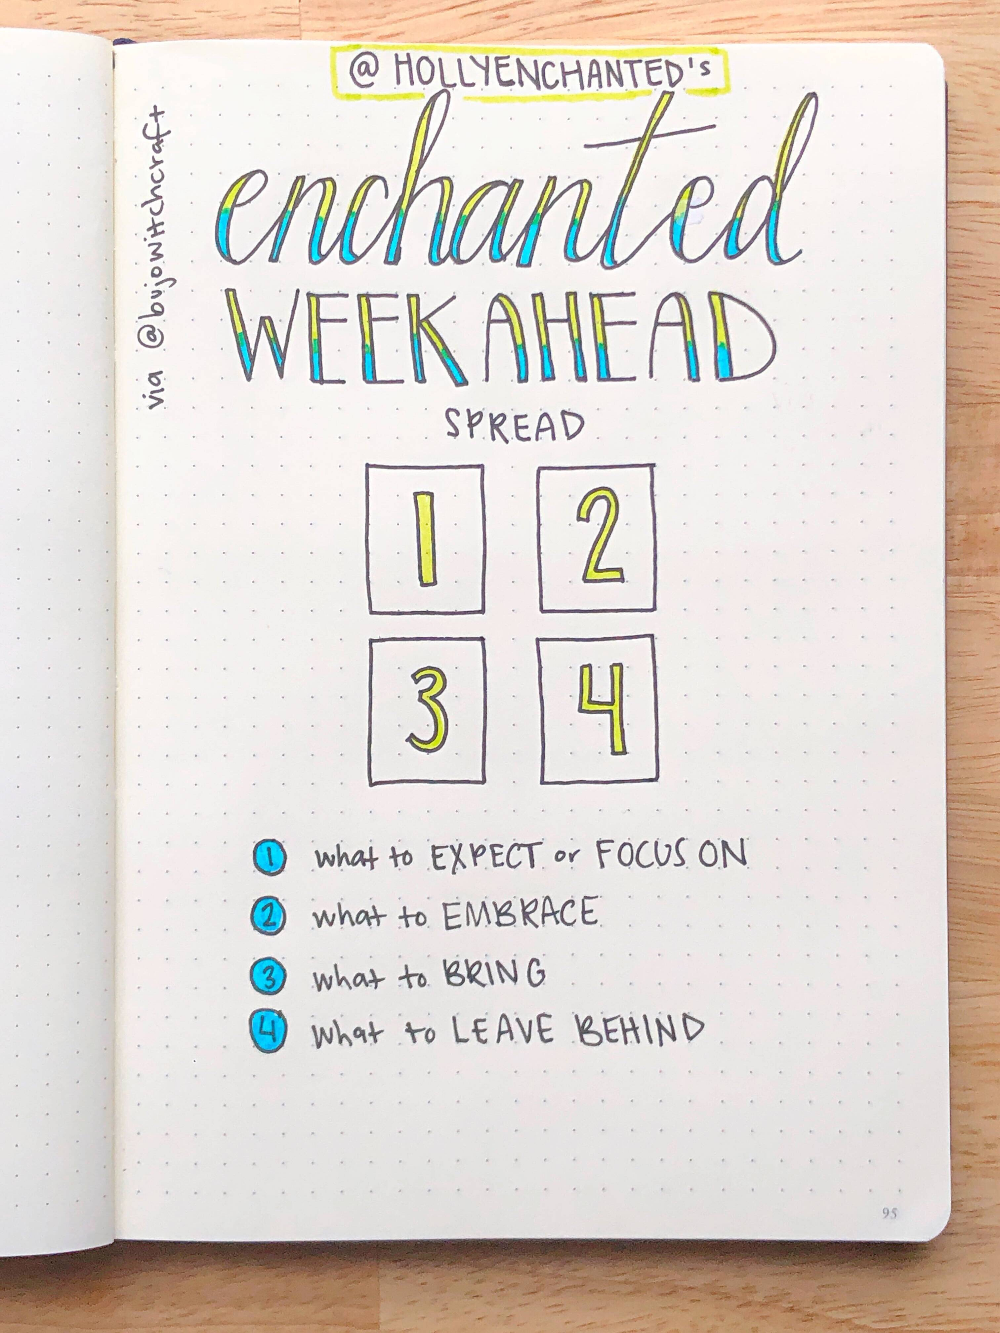 @ HOLLYENCHANTED's
enchanted
WEEK AHEAD
SPREAD
via @bujowitchcraft
1 2
3 4
1 what to EXPECT or FOCUS ON
2 what to EMBRACE
3 what to BRING
4 what to LEAVE BEHIND
95